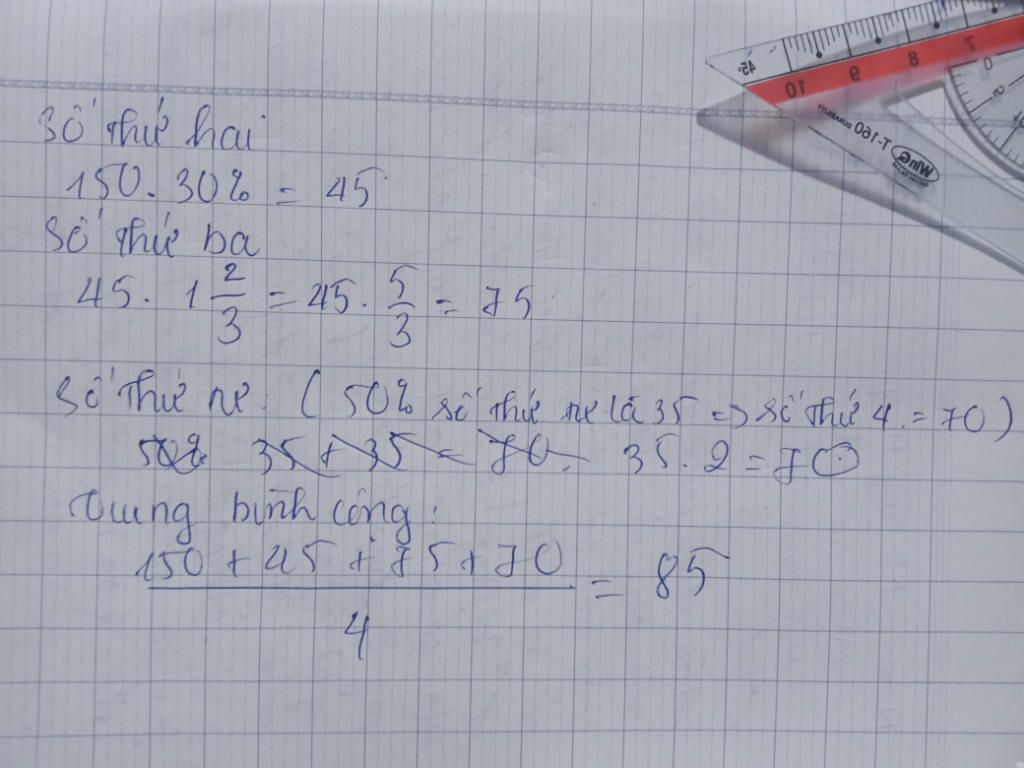 Số thứ hai
150. 30% = 45
Số thứ ba
45. 1 2/3 = 45. 5/3 = 75
Số thứ tư: ( 50% số thứ tư là 35 => số thứ 4 = 70 )
50% 35 + 35 = 70. 35. 2 = 70
Trung bình cộng:
150 + 45 + 75 + 70 / 4 = 85
45°
10 9 8 7
0
T-160
WinG